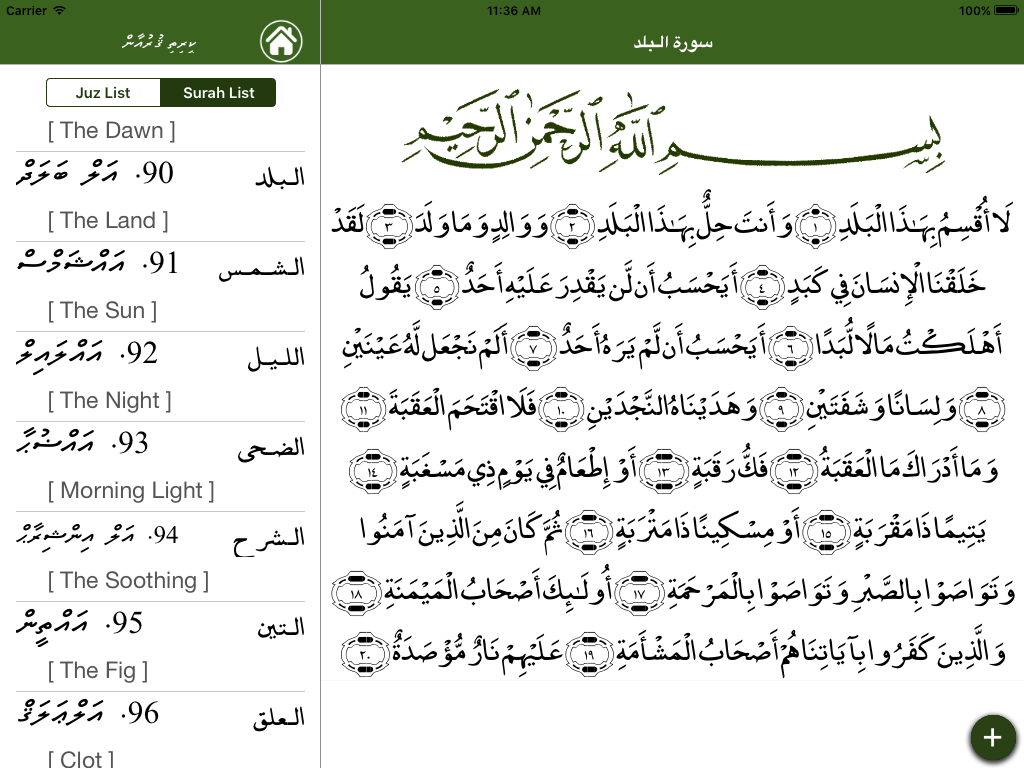 Carrier 11:36 AM 100%
ކީރިތި ޤުރުއާން
سورة البلد
Juz List Surah List
[ The Dawn ]
90. އަލް ބަލަދް البلد
[ The Land ]
91. އައްޝަމްސް الشمس
[ The Sun ]
92. އައްލައިލް الليل
[ The Night ]
93. އައްޟުޙާ الضحى
[ Morning Light ]
94. އަލް އިންޝިރާޙް الشرح
[ The Soothing ]
95. އައްތީން التين
[ The Fig ]
96. އަލްޢަލަޤް العلق
[ Clot ]
بِسْمِ اللَّهِ الرَّحْمَٰنِ الرَّحِيمِ
لَا أُقْسِمُ بِهَٰذَا الْبَلَدِ ١ وَأَنتَ حِلٌّ بِهَٰذَا الْبَلَدِ ٢ وَوَالِدٍ وَمَا وَلَدَ ٣ لَقَدْ
خَلَقْنَا الْإِنسَانَ فِي كَبَدٍ ٤ أَيَحْسَبُ أَن لَّن يَقْدِرَ عَلَيْهِ أَحَدٌ ٥ يَقُولُ
أَهْلَكْتُ مَالًا لُّبَدًا ٦ أَيَحْسَبُ أَن لَّمْ يَرَهُ أَحَدٌ ٧ أَلَمْ نَجْعَل لَّهُ عَيْنَيْنِ
٨ وَلِسَانًا وَشَفَتَيْنِ ٩ وَهَدَيْنَاهُ النَّجْدَيْنِ ١٠ فَلَا اقْتَحَمَ الْعَقَبَةَ ١١
وَمَا أَدْرَاكَ مَا الْعَقَبَةُ ١٢ فَكُّ رَقَبَةٍ ١٣ أَوْ إِطْعَامٌ فِي يَوْمٍ ذِي مَسْغَبَةٍ ١٤
يَتِيمًا ذَا مَقْرَبَةٍ ١٥ أَوْ مِسْكِينًا ذَا مَتْرَبَةٍ ١٦ ثُمَّ كَانَ مِنَ الَّذِينَ آمَنُوا
وَتَوَاصَوْا بِالصَّبْرِ وَتَوَاصَوْا بِالْمَرْحَمَةِ ١٧ أُولَٰئِكَ أَصْحَابُ الْمَيْمَنَةِ ١٨
وَالَّذِينَ كَفَرُوا بِآيَاتِنَا هُمْ أَصْحَابُ الْمَشْأَمَةِ ١٩ عَلَيْهِمْ نَارٌ مُّؤْصَدَةٌ ٢٠